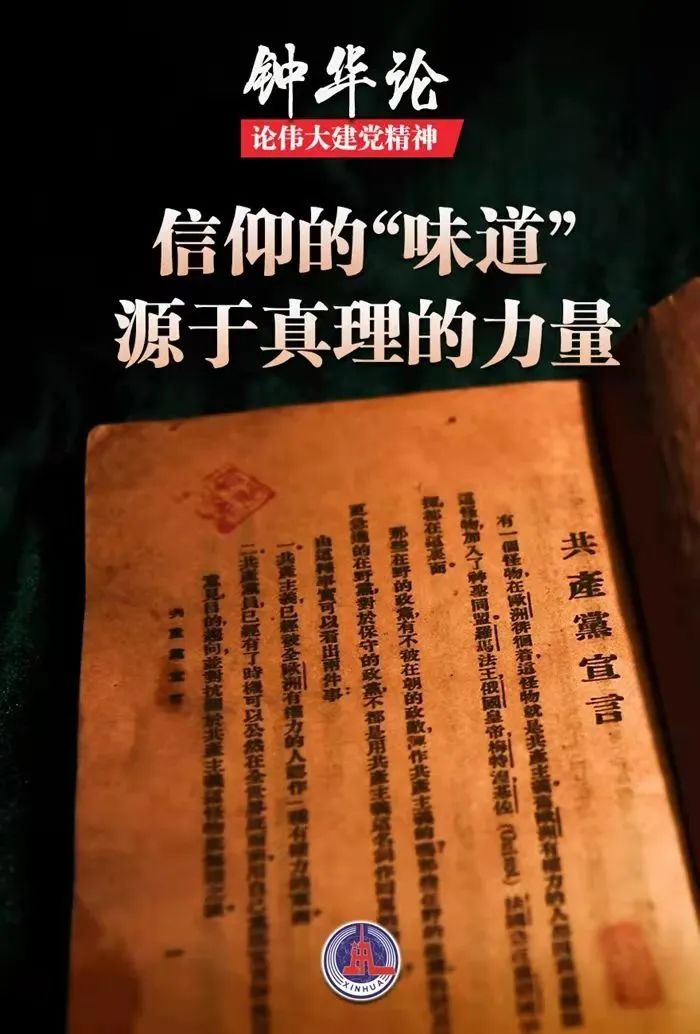 钟华论
论伟大建党精神
信仰的“味道”
源于真理的力量
共產黨宣言
有一個怪物，在歐洲徘徊着，這怪物就是共產主義。歐洲有權力的人都
這怪物，加入了神聖同盟。羅馬法王，俄國皇帝，梅特涅，基佐（Guizot），法國
都在這裏面。
那些在野的政黨，有不被在朝的政敵，作共產主義的
在野的政黨，對於保守的政黨，不都是用共產主義這名詞作回
由這種事實可以看出兩件事：
一。共產主義已經被全歐洲有權力的人認作一種有權力的東西。
二。共產黨員已經有了時機可以公然在全世界
意見目的趨向，並對抗關於共產主義
XINHUA